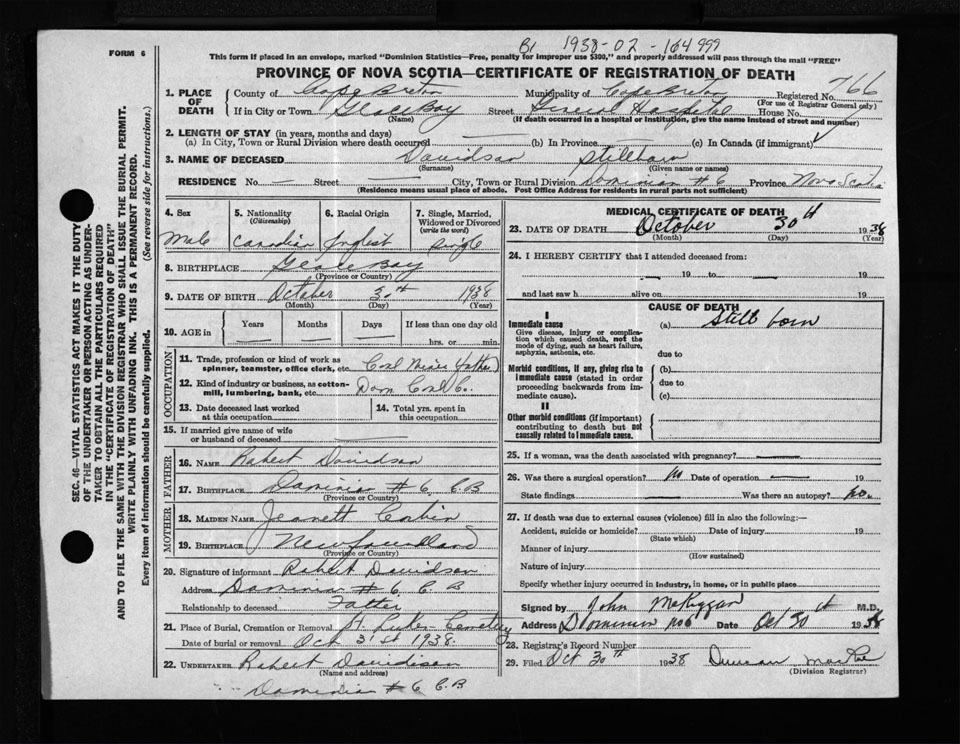 B1 1938-02-164999
FORM 6
This form if placed in an envelope, marked "Dominion Statistics—Free, penalty for improper use $300," and properly addressed will pass through the mail "FREE"
PROVINCE OF NOVA SCOTIA—CERTIFICATE OF REGISTRATION OF DEATH
1. PLACE OF DEATH
County of Cape Breton Municipality of Cape Breton Registered No. 766
(For use of Registrar General only)
If in City or Town Glace Bay Street General Hospital House No.
(Name) (If death occurred in a hospital or institution, give the name instead of street and number)
2. LENGTH OF STAY (in years, months and days)
(a) In City, Town or Rural Division where death occurred — (b) In Province (c) In Canada (if immigrant)
3. NAME OF DECEASED Davidson Stillborn
(Surname) (Given name or names)
RESIDENCE No. — Street — City, Town or Rural Division Dominion # 6 Province Nova Scotia
(Residence means usual place of abode. Post Office Address for residents in rural parts not sufficient)
4. Sex
Male
5. Nationality
(Citizenship)
Canadian
6. Racial Origin
English
7. Single, Married, Widowed or Divorced
(write the word)
Single
8. BIRTHPLACE Glace Bay
(Province or Country)
9. DATE OF BIRTH October 30th 1938
(Month) (Day) (Year)
10. AGE in
Years Months Days If less than one day old
— — — hrs. or min.
OCCUPATION
11. Trade, profession or kind of work as
spinner, teamster, office clerk, etc. Coal Miner (father)
12. Kind of industry or business, as cotton-
mill, lumbering, bank, etc. Dom Coal Co.
13. Date deceased last worked
at this occupation
14. Total yrs. spent in
this occupation
15. If married give name of wife
or husband of deceased —
FATHER
16. NAME Robert Davidson
17. BIRTHPLACE Dominion # 6 C.B
(Province or Country)
MOTHER
18. MAIDEN NAME Jeanett Corbin
19. BIRTHPLACE Newfoundland
(Province or Country)
20. Signature of informant Robert Davidson
Address Dominion # 6 C B
Relationship to deceased Father
21. Place of Burial, Cremation or Removal St. Lukes Cemetery
Date of burial or removal Oct 31st 1938.
22. UNDERTAKER Robert Davidson
(Name and address)
Dominion # 6 C.B
MEDICAL CERTIFICATE OF DEATH
23. DATE OF DEATH October 30th 1938
(Month) (Day) (Year)
24. I HEREBY CERTIFY that I attended deceased from:
— 19 — to 19
and last saw h alive on 19
CAUSE OF DEATH
I
Immediate cause
Give disease, injury or complica-
tion which caused death, not the
mode of dying, such as heart failure,
asphyxia, asthenia, etc.
(a) Still born
due to
Morbid conditions, if any, giving rise to
immediate cause (stated in order
proceeding backwards from im-
mediate cause).
(b)
due to
(c)
II
Other morbid conditions (if important)
contributing to death but not
causally related to immediate cause.
25. If a woman, was the death associated with pregnancy? —
26. Was there a surgical operation? no Date of operation —
State findings — Was there an autopsy? no.
27. If death was due to external causes (violence) fill in also the following:—
Accident, suicide or homicide? Date of injury 19
(State which)
Manner of injury
(How sustained)
Nature of injury
Specify whether injury occurred in industry, in home, or in public place
Signed by John McKiggan M.D.
Address Dominion No 6 Date Oct 30th 1938
28. Registrar's Record Number
29. Filed Oct 30th 1938 Duncan
(Division Registrar)
SEC. 46—VITAL STATISTICS ACT MAKES IT THE DUTY
OF THE UNDERTAKER OR PERSON ACTING AS UNDER-
TAKER TO OBTAIN ALL THE PARTICULARS REQUIRED
IN THE "CERTIFICATE OF REGISTRATION OF DEATH"
AND TO FILE THE SAME WITH THE DIVISION REGISTRAR WHO SHALL ISSUE THE BURIAL PERMIT.
WRITE PLAINLY WITH UNFADING INK. THIS IS A PERMANENT RECORD.
Every item of information should be carefully supplied. (See reverse side for instructions.)